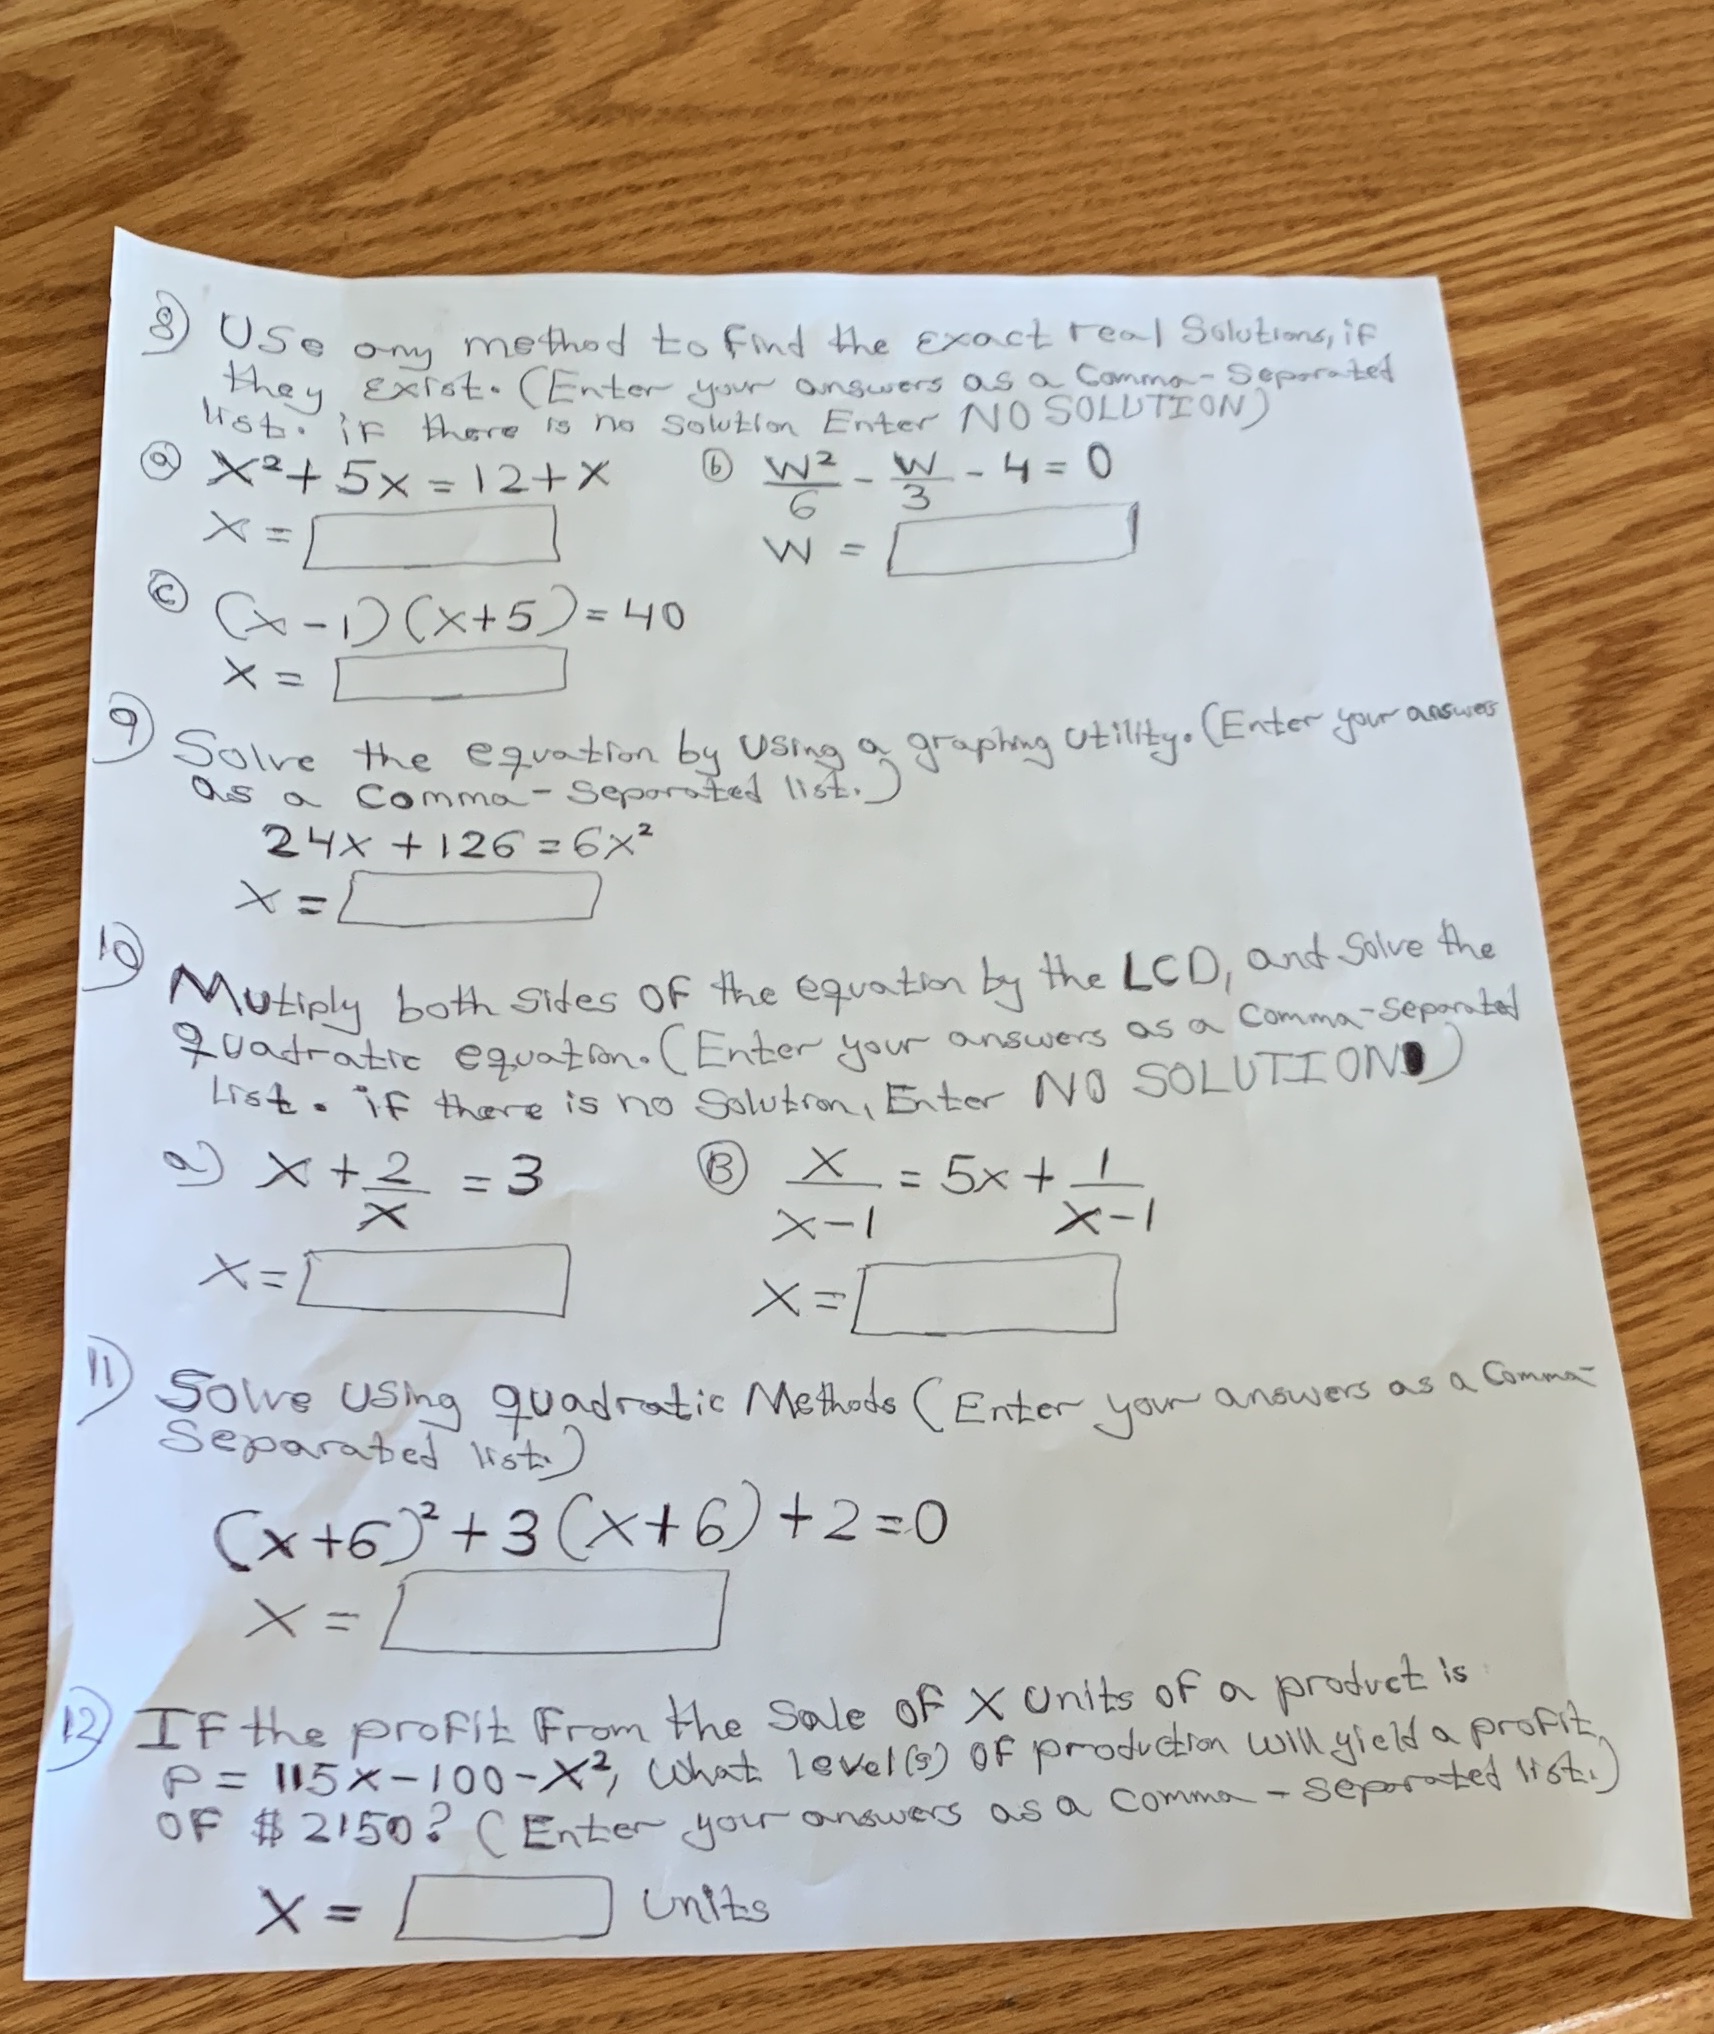 8) Use any method to find the exact real Solutions, if
they exist. (Enter your answers as a Comma-Separated
list. if there is no Solution Enter NO SOLUTION)
ⓐ x² + 5x = 12 + x ⓑ w²/6 - w/3 - 4 = 0
x = w =
ⓒ (x-1)(x+5) = 40
x =
9) Solve the equation by using a graphing utility. (Enter your answers
as a Comma-Separated list.)
24x + 126 = 6x²
x =
10) Mutiply both sides of the equation by the LCD, and solve the
quadratic equation. (Enter your answers as a comma-separated
List. if there is no Solution, Enter NO SOLUTION)
a) x + 2/x = 3 Ⓑ x/(x-1) = 5x + 1/(x-1)
x = x =
11) Solve using quadratic Methods (Enter your answers as a Comma-
Separated list.)
(x+6)² + 3(x+6) + 2 = 0
x =
12) If the profit from the sale of x units of a product is
P = 115x - 100 - x², what level(s) of production will yield a profit
of $2150? (Enter your answers as a comma-separated list.)
x = units